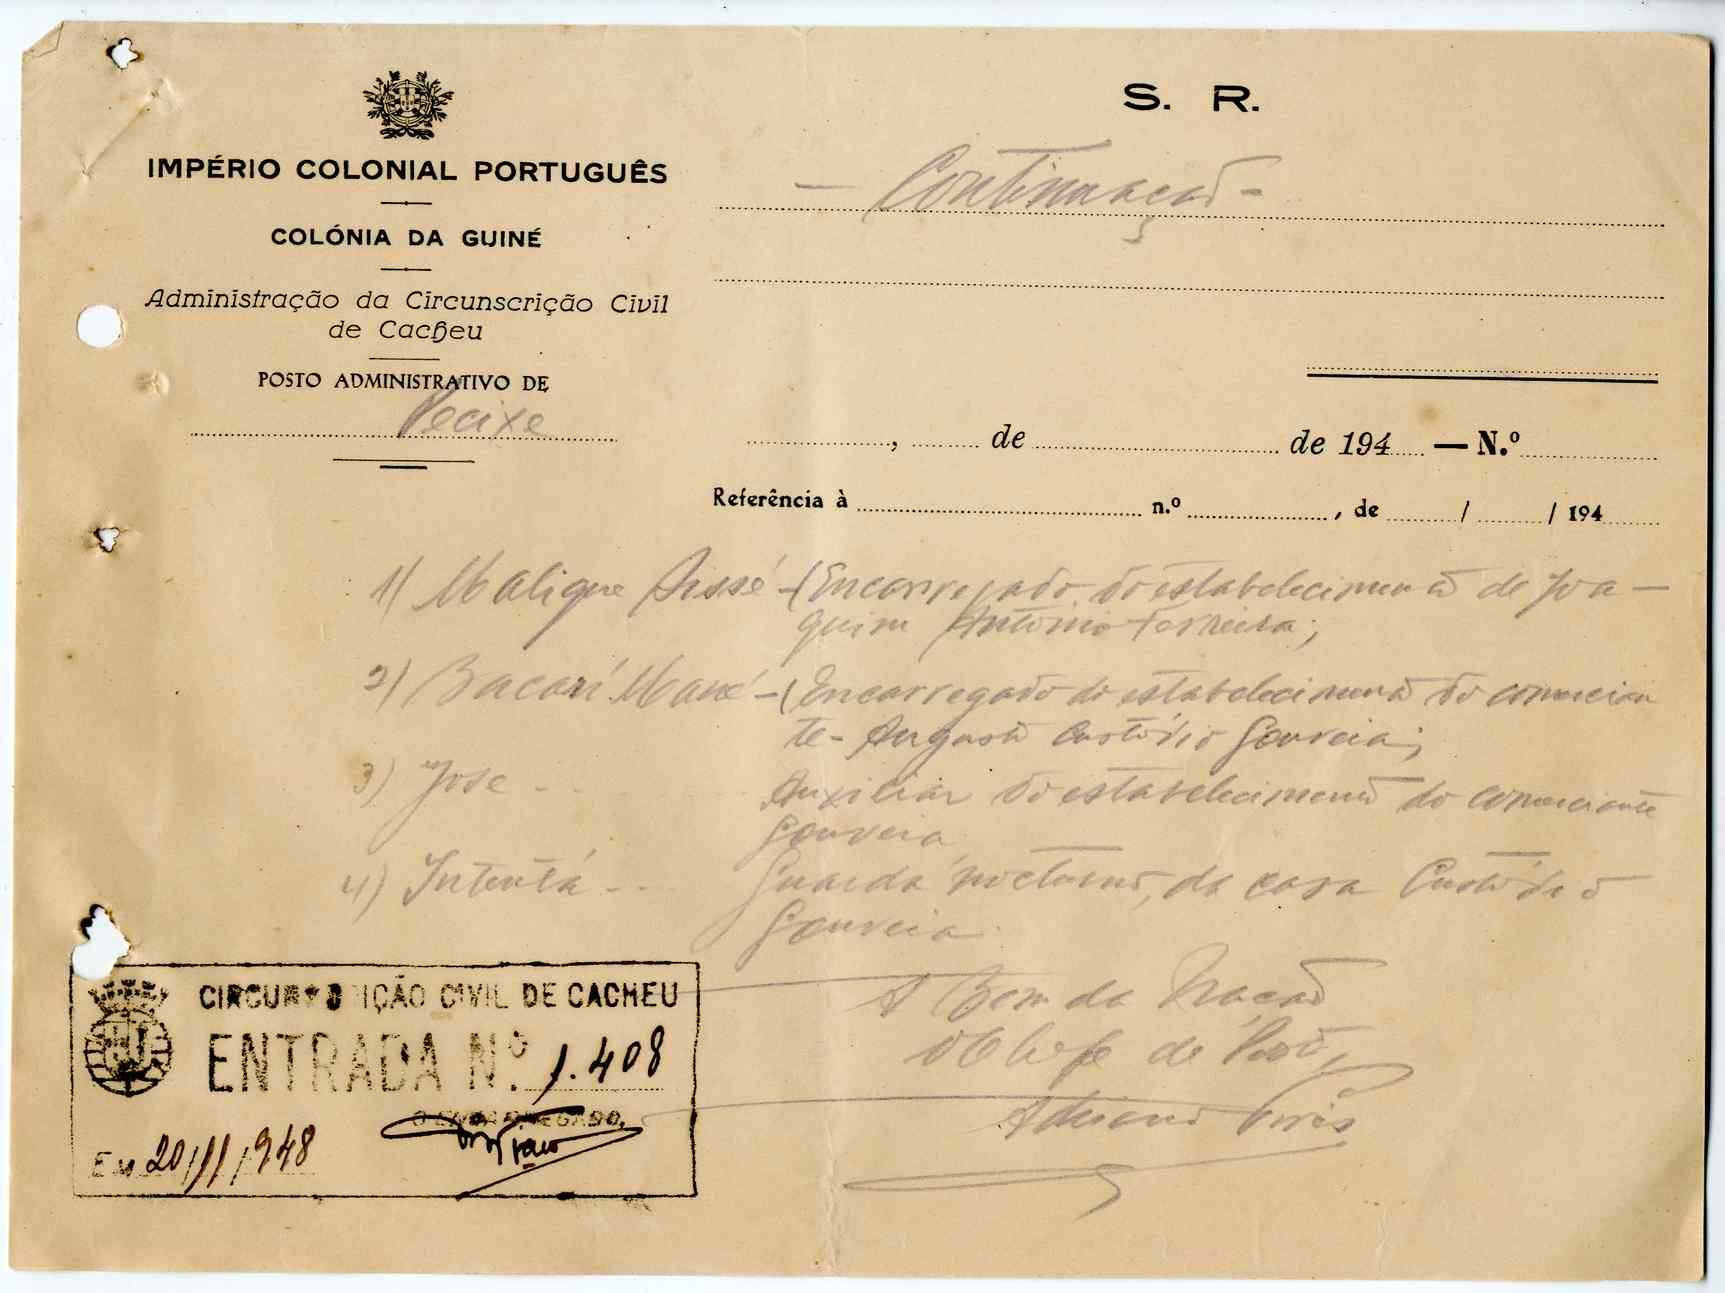 IMPÉRIO COLONIAL PORTUGUÊS
COLÓNIA DA GUINÉ
Administração da Circunscrição Civil
de Cacheu
POSTO ADMINISTRATIVO DE
Pecixe
S. R.
— Continuação —
, de de 194 — N.º
Referência à n.º , de / / 194
1) Malique Sissé - (Encarregado do estabelecimento de Joa—
quim António Ferreira;
2) Bacari Mané - (Encarregado do estabelecimento do comercian
te - Augusto Custódio Gouveia;
3) José - - Auxiliar do estabelecimento do comerciante
Gouveia
4) Intentá - - - Guarda nocturno, da casa Custódio
Gouveia.
A Bem da Nação
O Chefe de Posto,
Adriano Pires
CIRCUNSCRIÇÃO CIVIL DE CACHEU
ENTRADA N.º 1.408
O ENCARREGADO,
EM 20/11/948